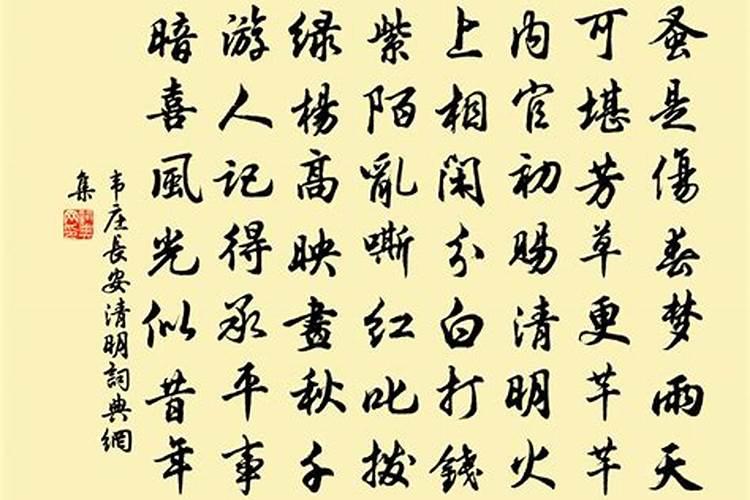 蚤是傷春梦雨天
可堪芳草更芊芊
内官初賜清明火
上相閑分白打錢
紫陌亂嘶紅叱撥
绿楊高映畫秋千
游人記得承平事
暗喜風光似昔年
韦庄長安清明詞典網
集